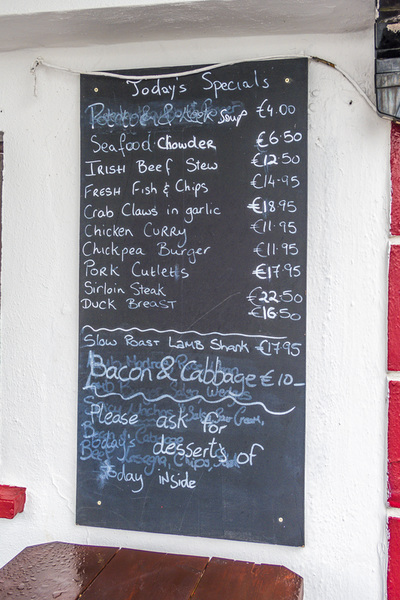 Today's Specials
Potato & Leek Soup €4.00
Seafood Chowder €6.50
IRISH Beef Stew €12.50
FRESH Fish & Chips €14.95
Crab Claws in garlic €18.95
Chicken CURRY €11.95
Chickpea Burger €11.95
PORK Cutlets €17.95
Sirloin Steak €22.50
DUCK BREAST €16.50
Slow Roast LAMB SHANK €17.95
Bacon & Cabbage €10-
Please ask for
today's desserts of
today inside